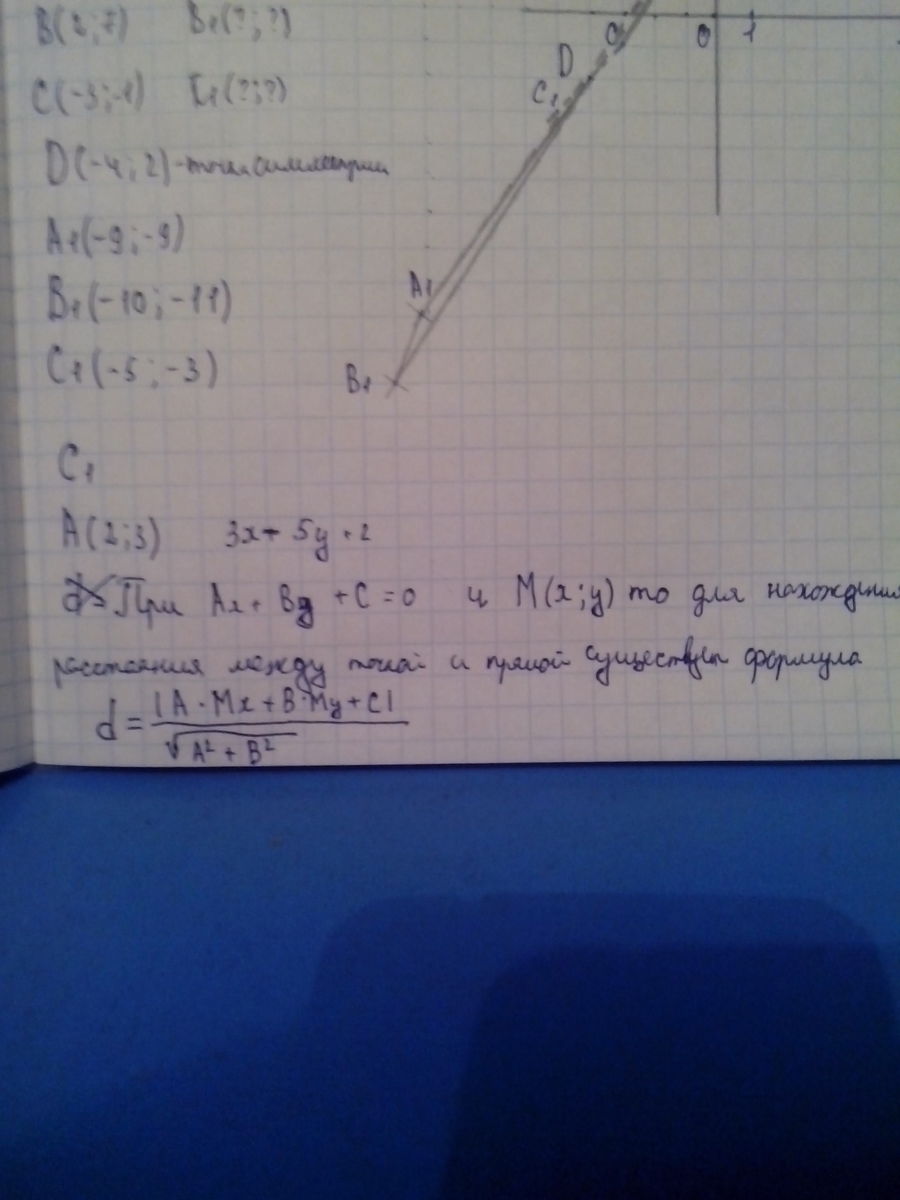 B(2;7) B₁(?;?)
C(-3;-1) C₁(?;?)
D(-4;2)-точка симметрии
A₁(-9;-9)
B₁(-10;-11)
C₁(-5;-3)
C
D
C₁
0 1
A₁
B₁
C₁
A(2;3) 3x+5y=2
При Ax+By+C=0 и M(x;y) то для нахождения
расстояния между точкой и прямой существует формула
d = |A·Mx+B·My+C| / √A²+B²